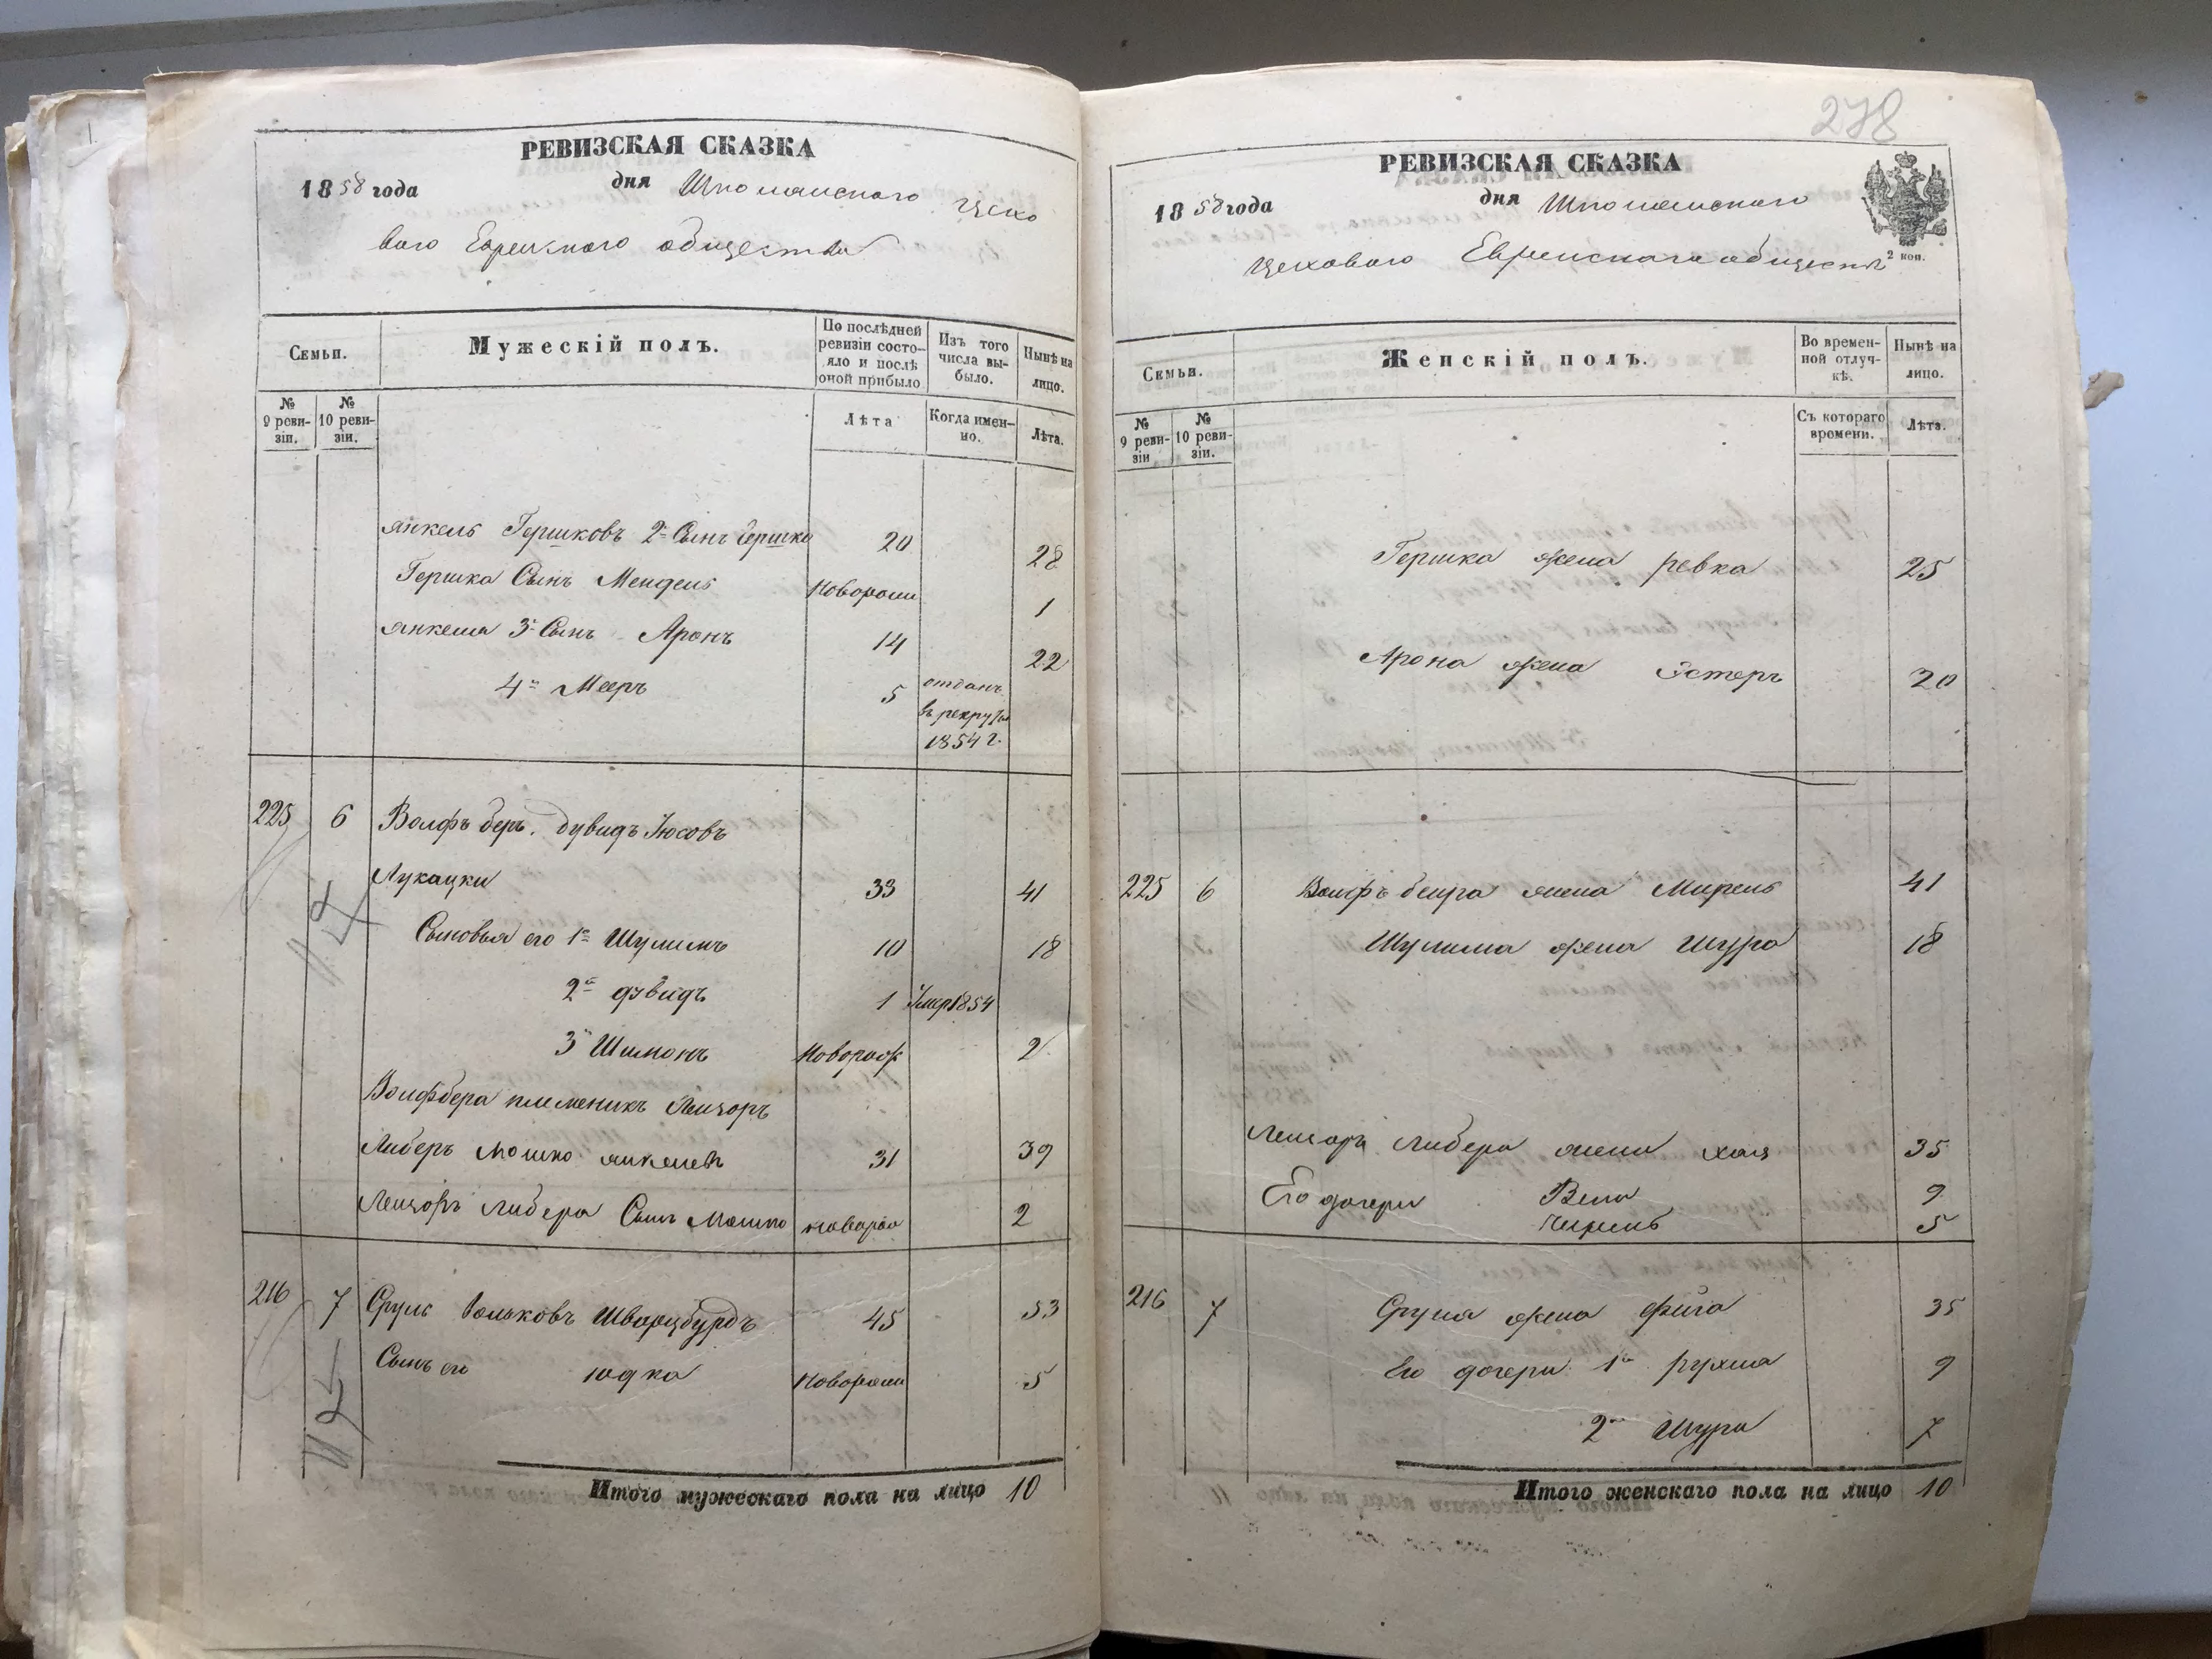 РЕВИЗСКАЯ СКАЗКА
1858 года дня Шполянского цехо
ваго Еврейского общества
Семьи.
Мужескій полъ.
По послѣдней ревизіи состояло и послѣ оной прибыло
Изъ того числа выбыло.
Нынѣ на лицо.
№ 9 ревизіи.
№ 10 ревизіи.
Лѣта
Когда именно.
Лѣта.
Янкель Гершковъ 2й Сынъ Гершко 20 28
Гершка Сынъ Мендель Новорожд 1
Янкеля 3й Сынъ Аронъ 14 22
4й Мееръ 5 отданъ
въ рекруты
1854 г.
225 6 Волфъ беръ. дувидъ Іосовъ
Лукацки 33 41
Сыновья его 1й Шулимъ 10 18
2й дувидъ 1 Умер 1854
3й Шимонъ Новорож 2
Волфбера племеникъ Лейзоръ
Либеръ Мошко Янкелев 31 39
Лейзоръ Либера Сынъ Мошко новорож 2
216 7 Сруль Вольковъ Шварцбурдъ 45 53
Сынъ его Юдка Новорожд 5
Итого мужескаго пола на лицо 10
278
РЕВИЗСКАЯ СКАЗКА
1858 года дня Шполянского
цехового Еврейского общест
2 коп.
Семьи.
Женскій полъ.
Во временной отлучкѣ.
Нынѣ на лицо.
№ 9 ревизіи
№ 10 ревизіи.
Съ котораго времени.
Лѣта.
Гершка жена ревка 25
Арона жена Эстеръ 20
225 6 Волфъ беира жена Мирель 41
Шулима жена Шура 18
Лейзоръ Либера жена хая 35
Его дочери Вела 9
5
216 7 Сруля жена фейга 35
Его дочери 1я рухля 9
2я Шура 7
Итого женскаго пола на лицо 10